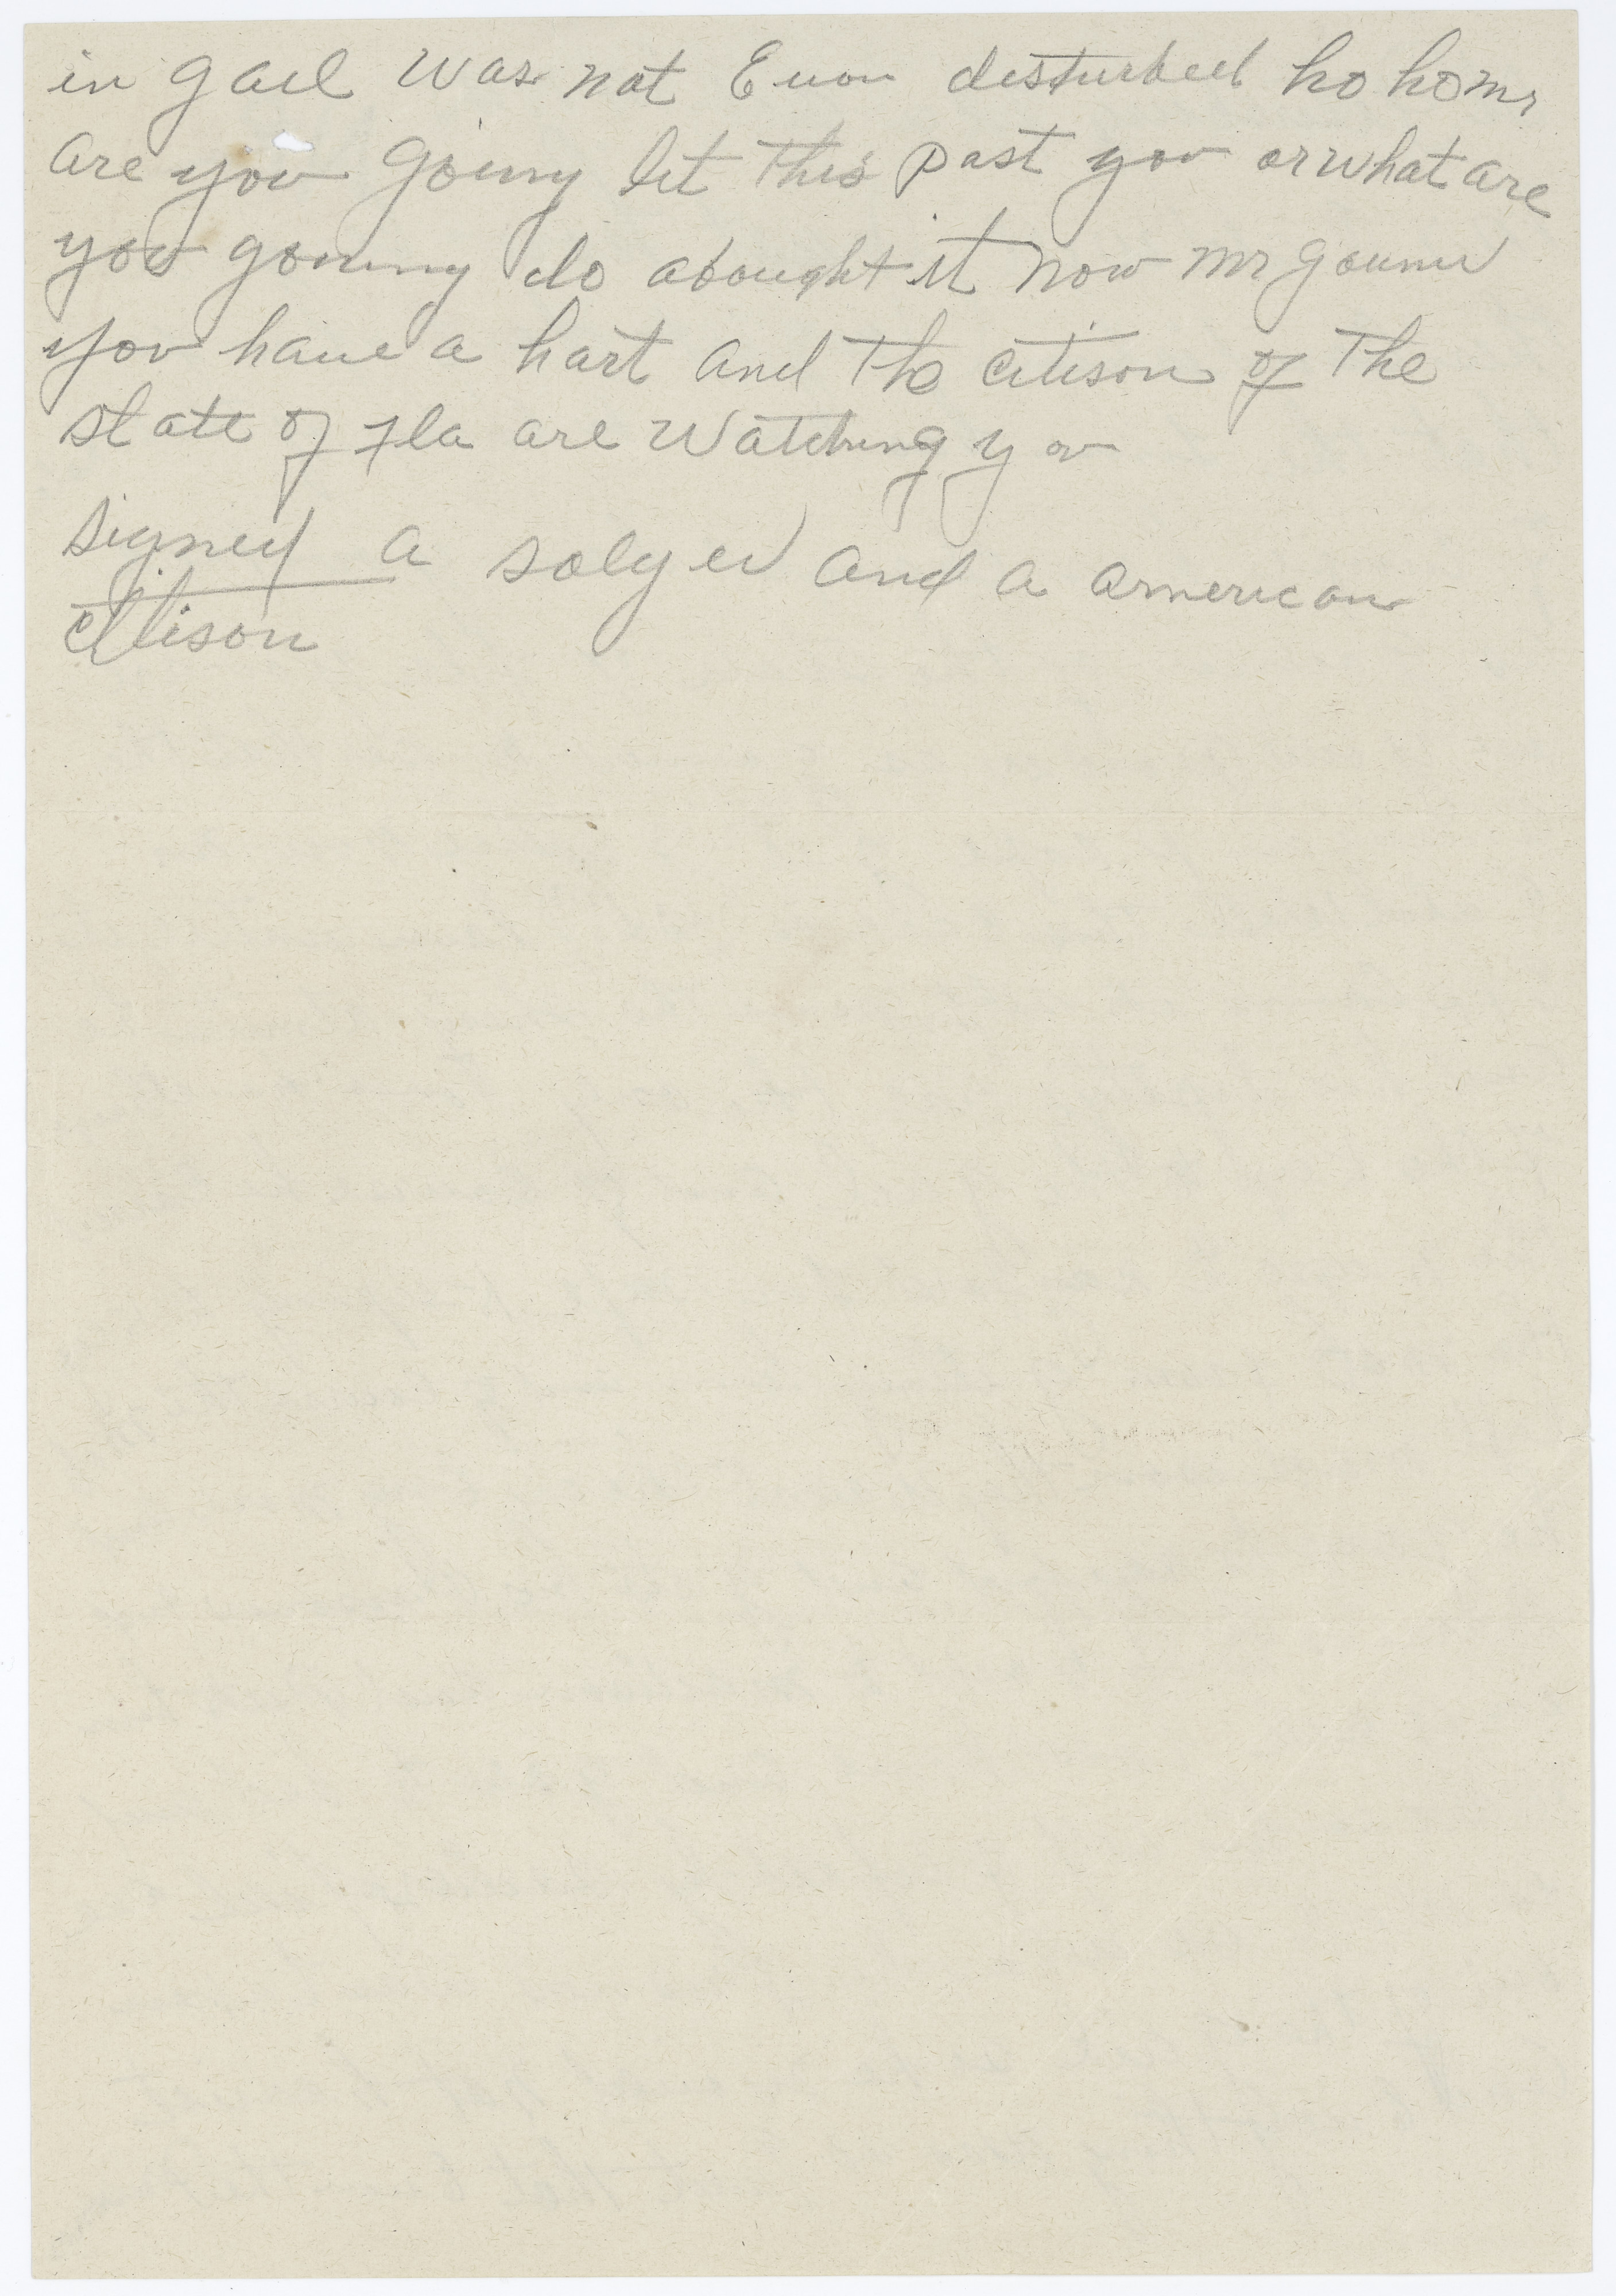 in gail was not Euon disturbed ho how
are you goiny let this past you or what are
you gonny do abought it now mr gouner
you haue a hart and the citison of the
state of fla are watching you
signed a solyer and a american
citison